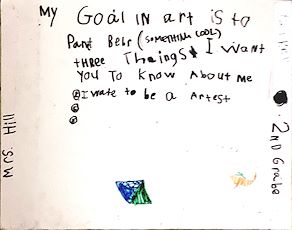 My Goal in art is to
Pant Betr (SOMETHING COOL)
THREE Theings I want
YOU TO Know About me
① I wate to be a Artest
②
③
Mrs. Hill
2ND Graibe